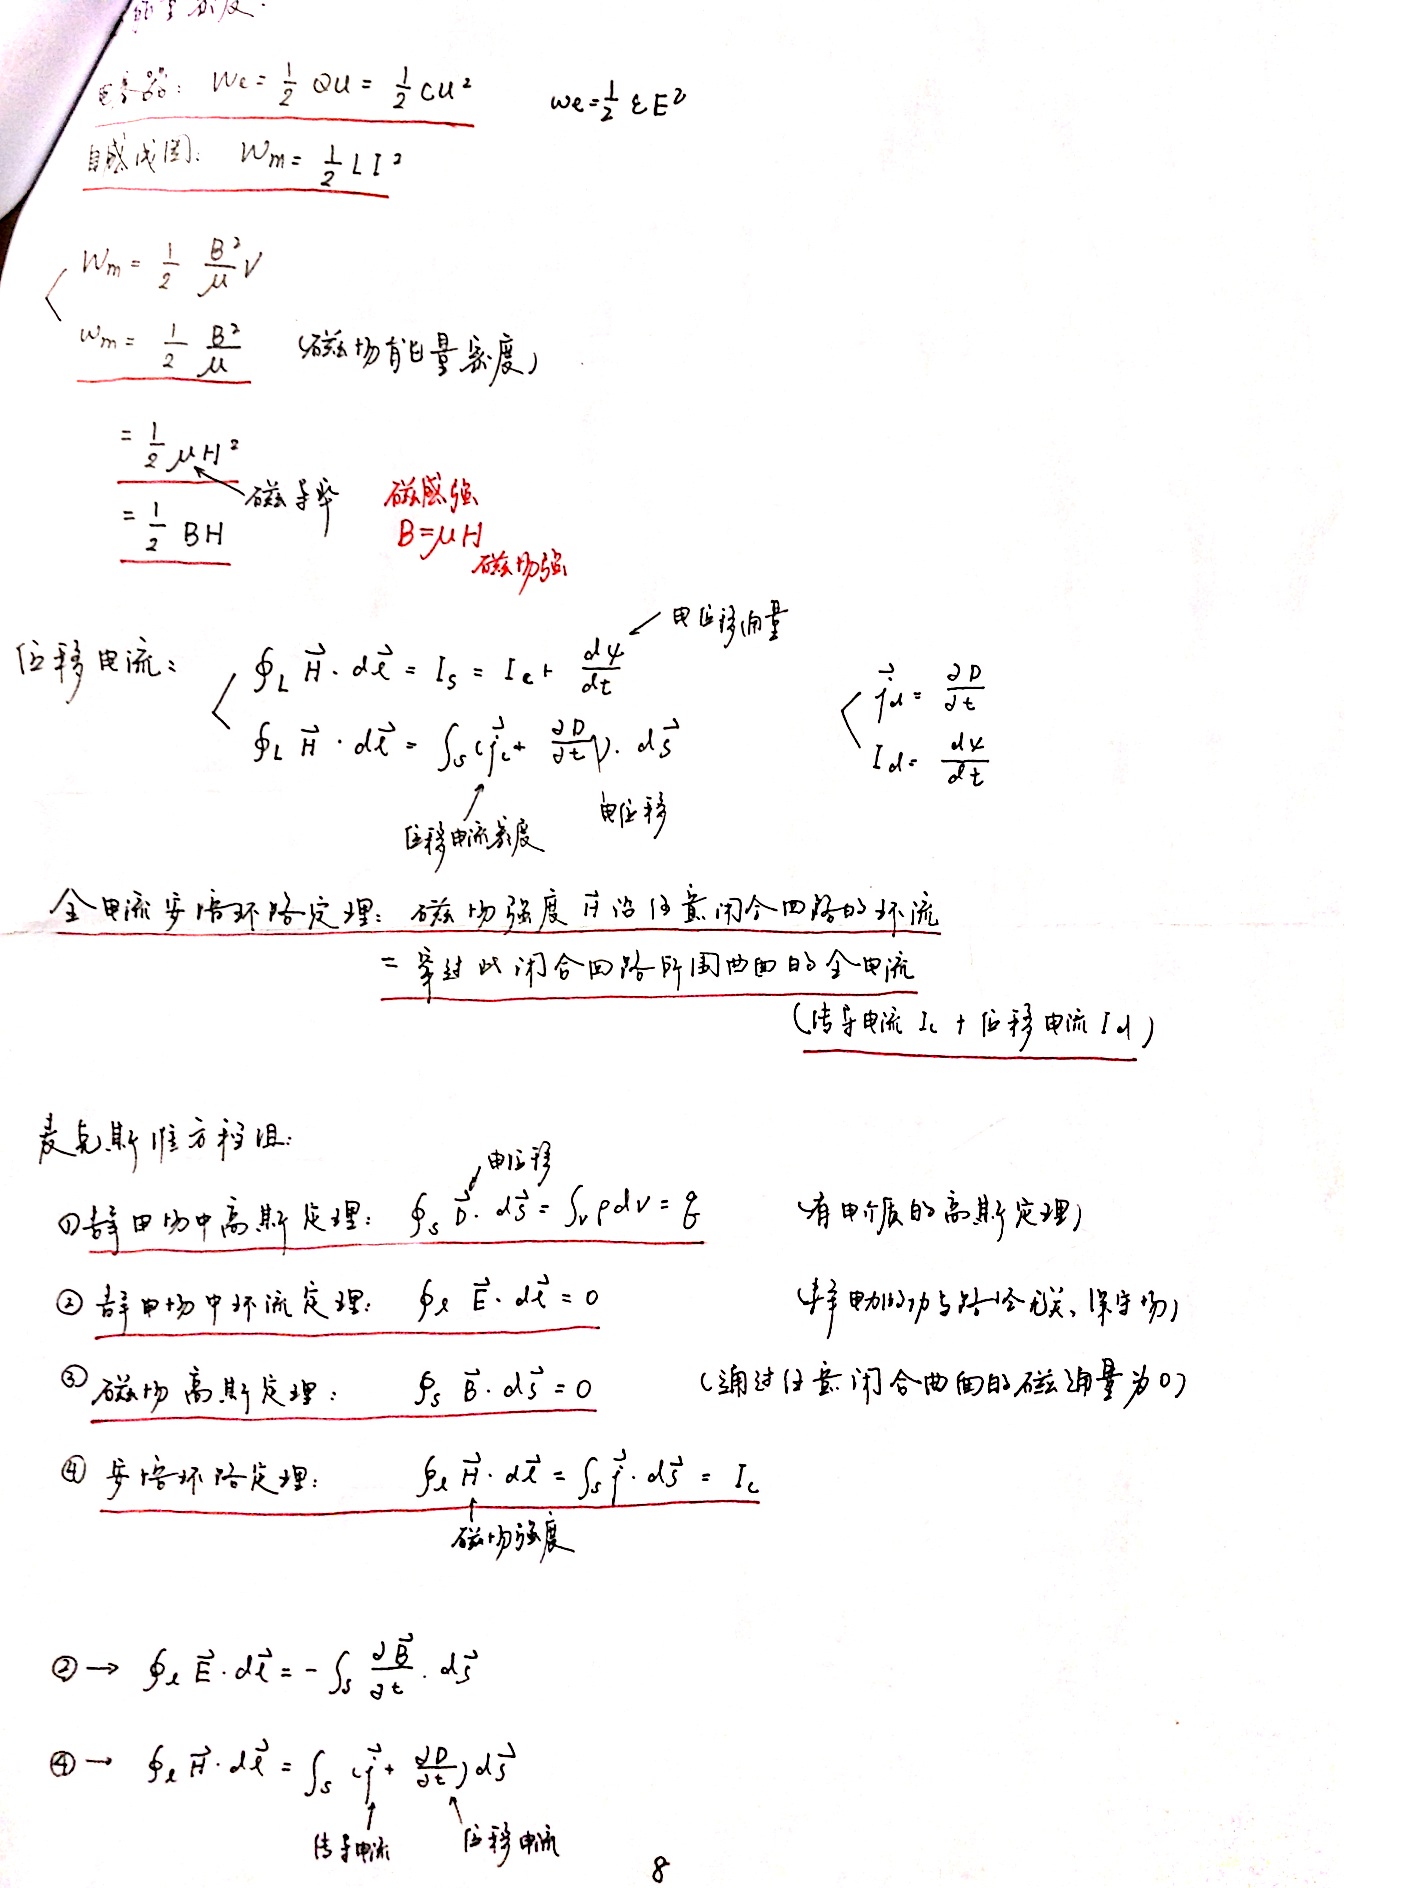 能量密度.
电容器: We = 1/2 QU = 1/2 CU² we = 1/2 εE²
自感线圈: Wm = 1/2 LI²
Wm = 1/2 B²/μ V
wm = 1/2 B²/μ (磁场能量密度)
= 1/2 μH²
磁导率 磁感强
= 1/2 BH B=μH
磁场强
电位移通量
位移电流: ∮L H⃗·dl⃗ = Is = Ic + dψ/dt j⃗d = ∂D/∂t
∮L H⃗·dl⃗ = ∫s(j⃗c + ∂D/∂t)·ds⃗ Id = dψ/dt
位移电流密度 电位移
全电流安培环路定理: 磁场强度H⃗沿任意闭合回路的环流
= 穿过此闭合回路所围曲面的全电流
(传导电流Ic + 位移电流Id)
麦克斯韦方程组:
电位移
① 静电场中高斯定理: ∮s D⃗·ds⃗ = ∫v ρdv = q (有电介质的高斯定理)
② 静电场中环流定理: ∮l E⃗·dl⃗ = 0 (静电力的功与路径无关、保守场)
③ 磁场高斯定理: ∮s B⃗·ds⃗ = 0 (通过任意闭合曲面的磁通量为0)
④ 安培环路定理: ∮l H⃗·dl⃗ = ∫s j⃗·ds⃗ = Ic
磁场强度
② → ∮l E⃗·dl⃗ = -∫s ∂B⃗/∂t·ds⃗
④ → ∮l H⃗·dl⃗ = ∫s (j⃗ + ∂D/∂t)ds⃗
传导电流 位移电流
8